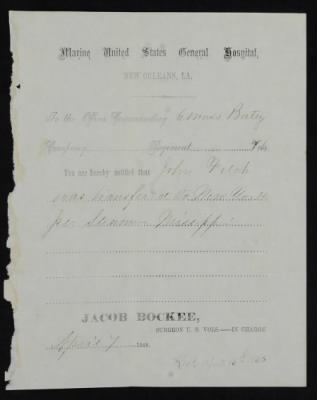 Marine United States General Hospital,
NEW ORLEANS, LA.
To the Officer Commanding
Company Regiment Vols.
You are hereby notified that John
was transferred to New York
per Steamer Mississippi
JACOB BOCKEE,
SURGEON U. S. VOLS.—IN CHARGE
April 7 186